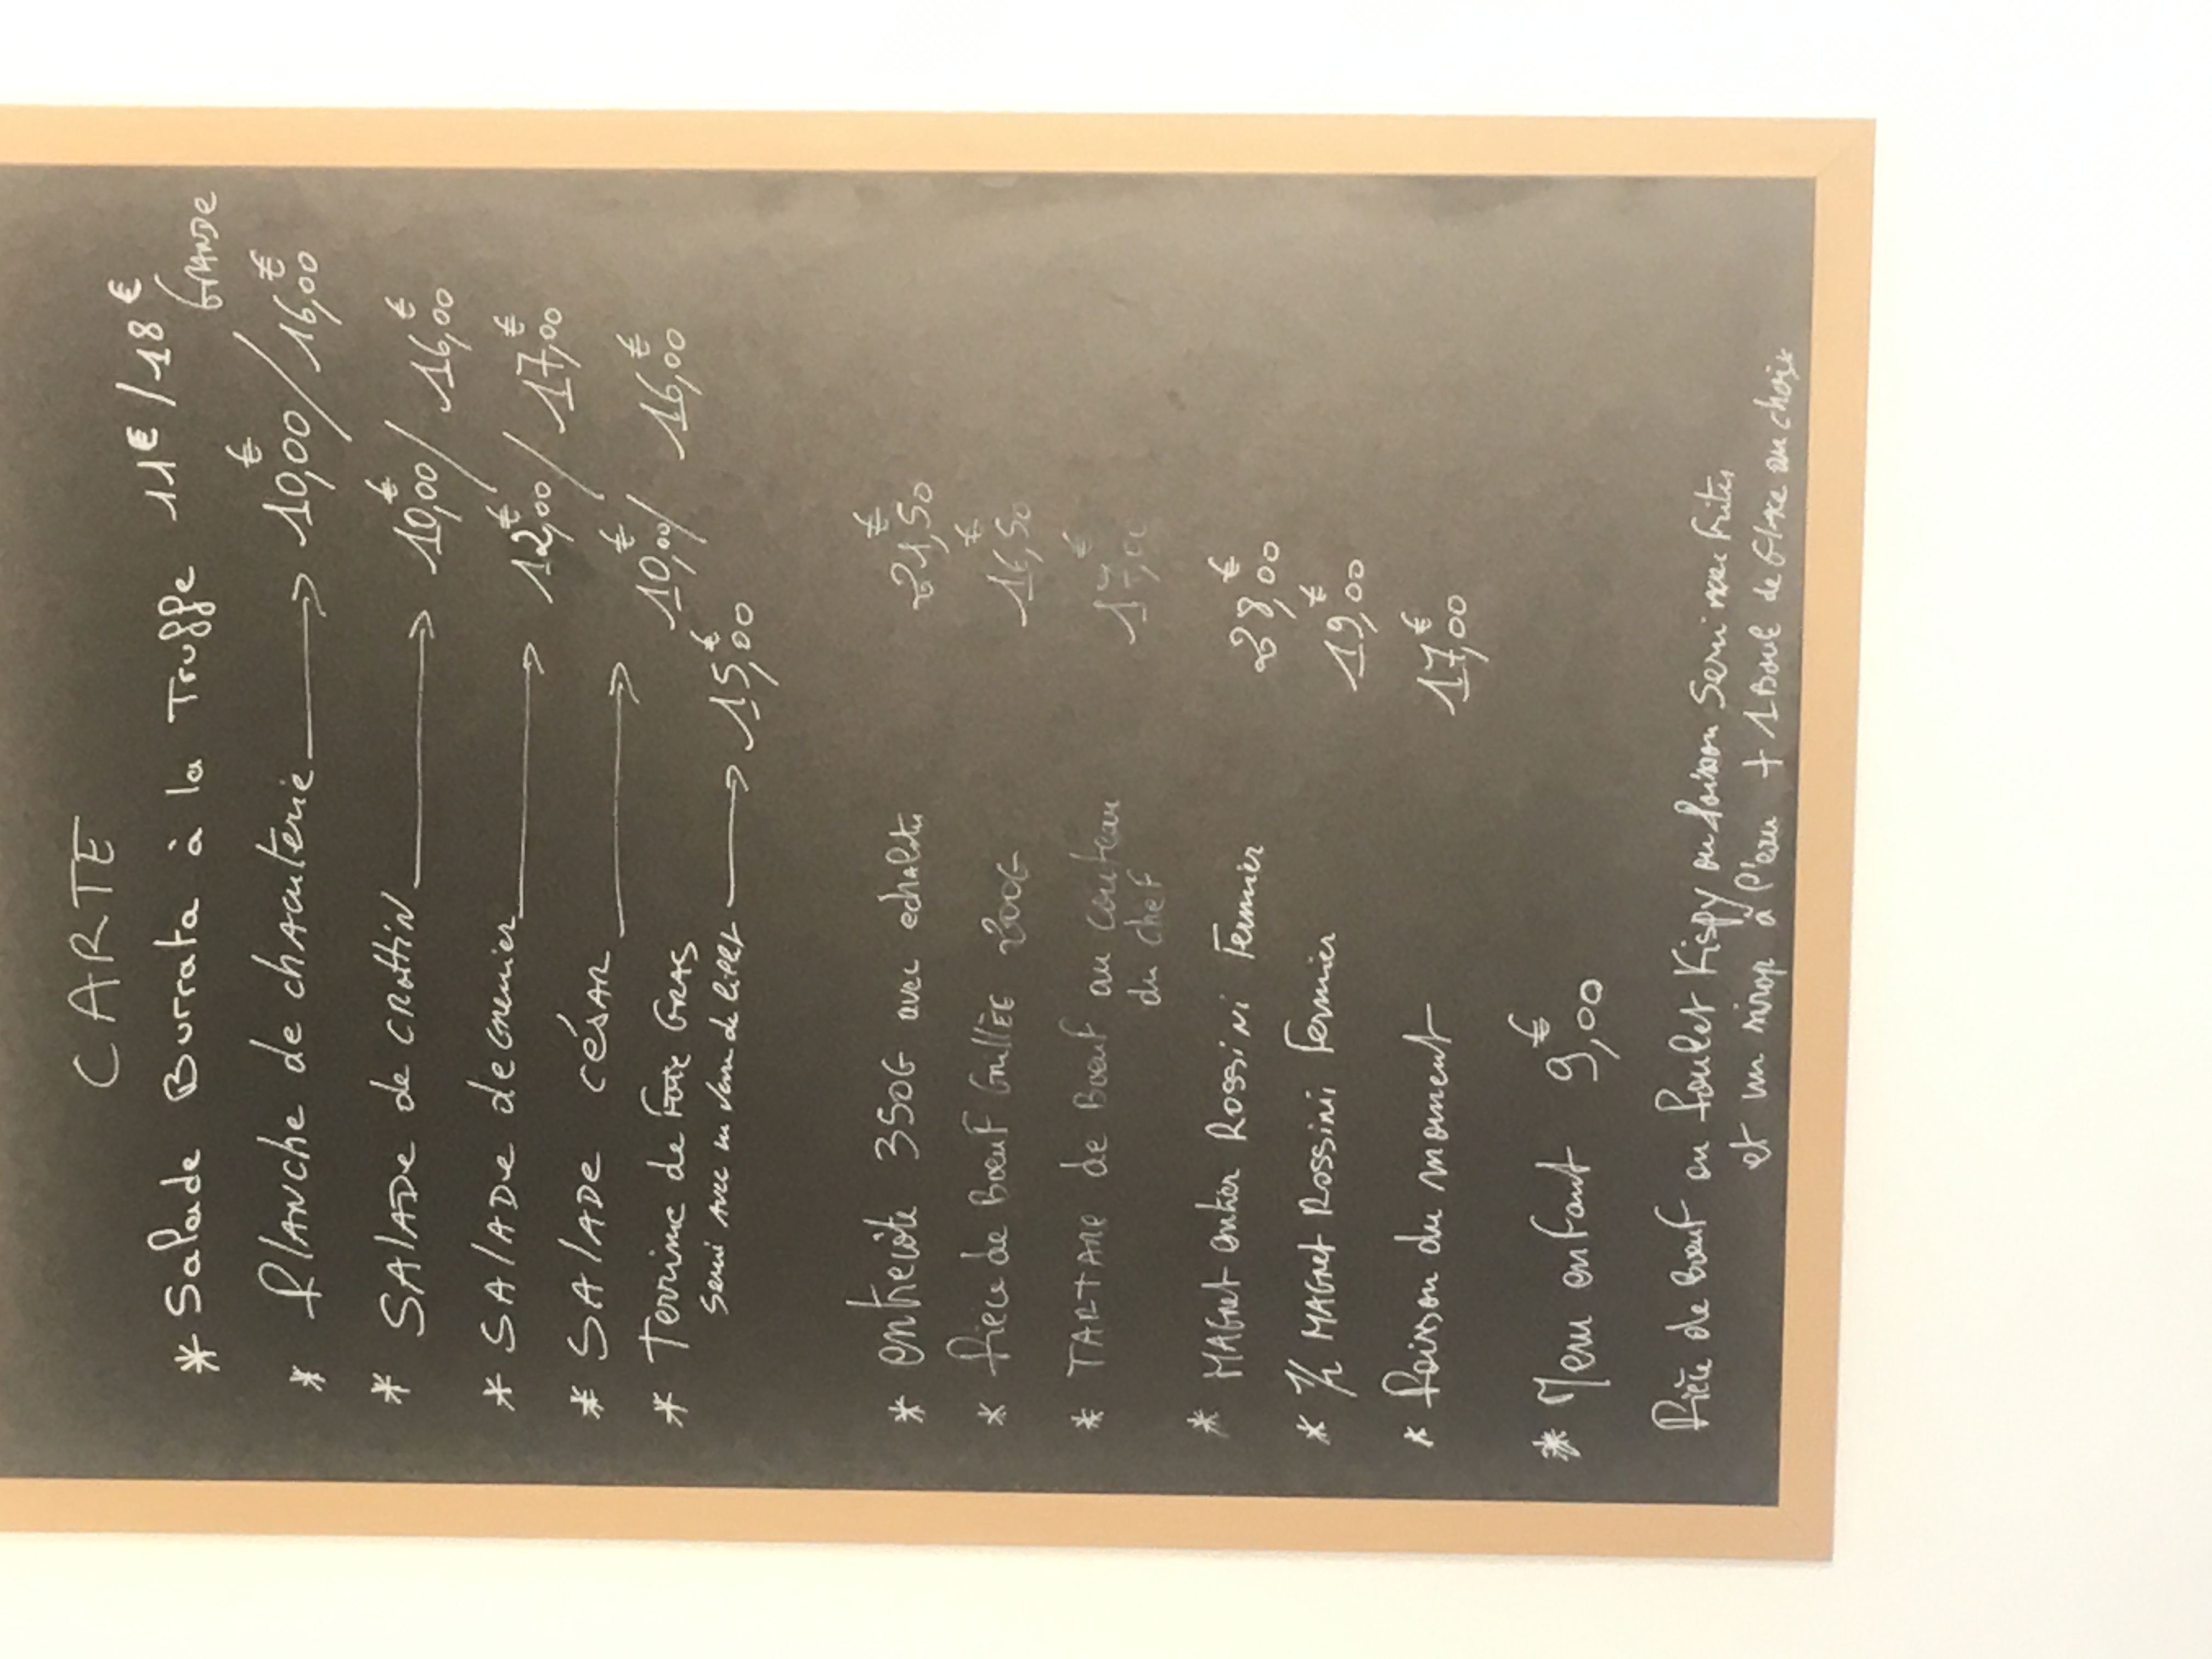 CARTE
* Salade Burrata à la Truffe 11€ / 18€
GRANDE
* Planche de chaRcuterie → 10,00€ / 16,00€
* SALADE de CROTTIN → 10,00€ / 16,00€
* SALADE de GRENIER → 12,00€ / 17,00€
* SALADE CÉSAR → 10,00€ / 16,00€
* Terrine de Foie GRAS
Servi Avec un Verre de → 15,00€
* entrecôte 350G avec echalote 21,50€
* Pièce de Boeuf Grillée 200G 16,50€
* TARTARE de Boeuf au couteau
du chef
* MAGRET entier ROSSINI Fermier 28,00€
* 1/2 MAGRET ROSSINI Fermier 19,00€
* Poisson du moment 17,00€
* Menu enfant 9,00€
Pièce de boeuf ou Poulet Kispy ou Poisson Servi avec frites
et un sirop à l'eau + 1 Boule de Glace au choix